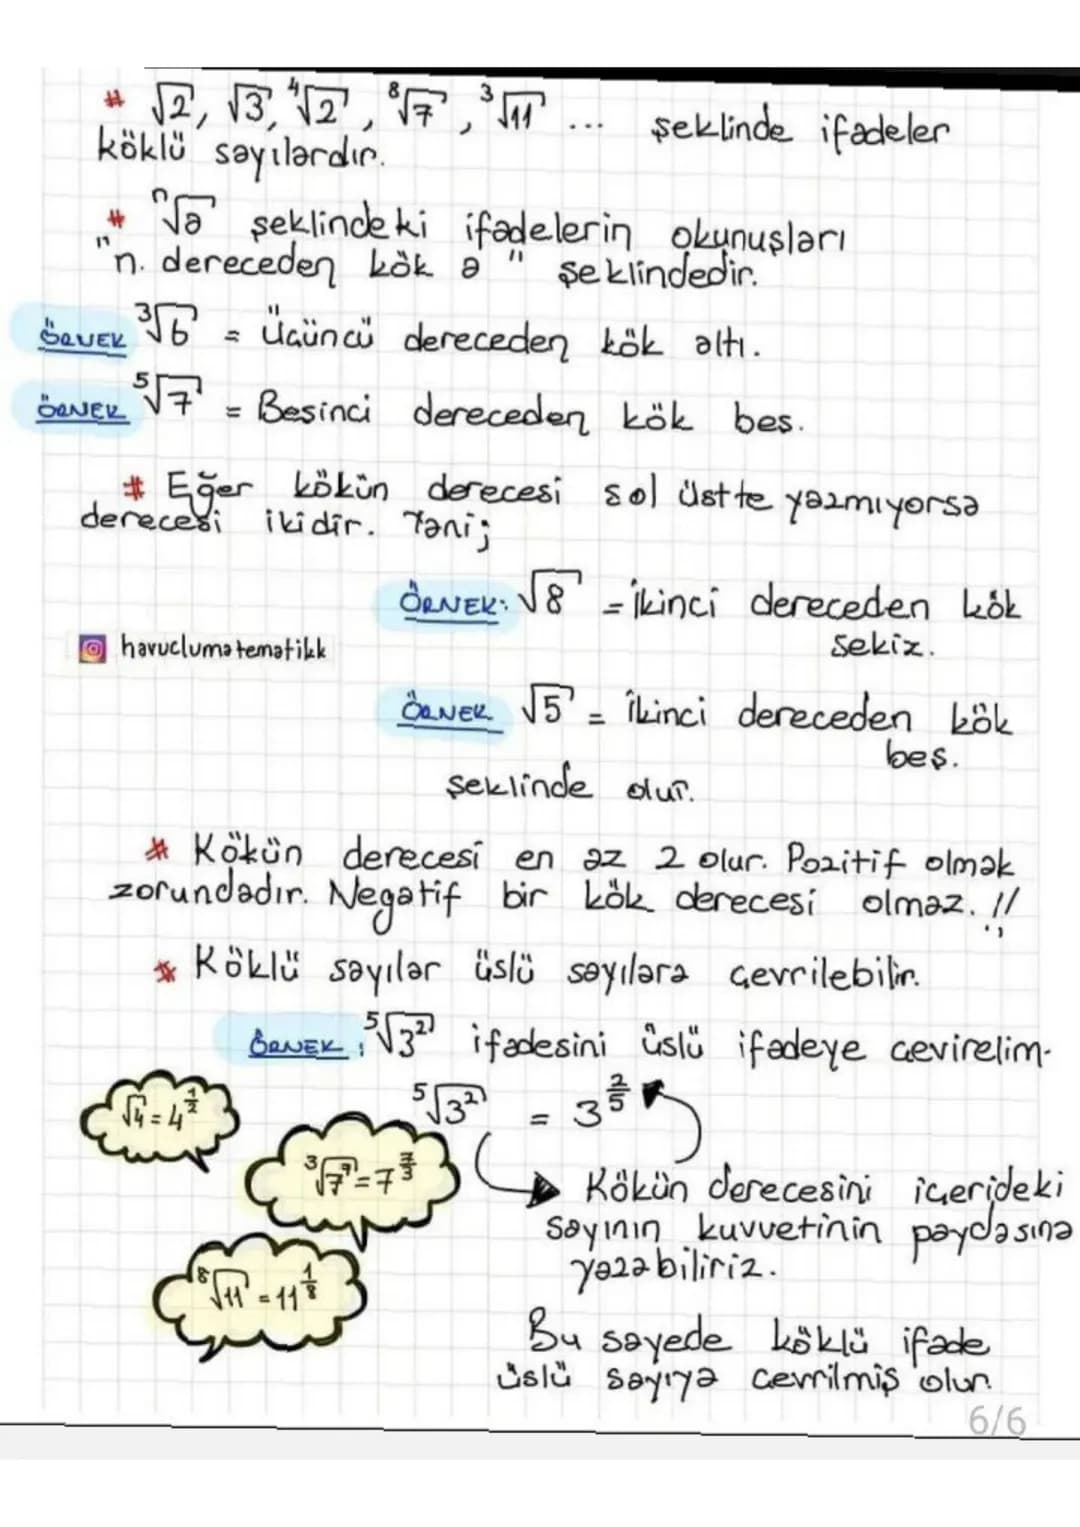 # √2, √3, ⁴√2, ⁸√7, ³√11 ... şeklinde ifadeler
köklü sayılardır.
# ⁿ√a şeklindeki ifadelerin okunuşları
"n. dereceden kök a" şeklindedir.
ÖRNEK ³√6 = Üçüncü dereceden kök altı.
ÖRNEK ⁵√7 = Beşinci dereceden kök beş.
# Eğer kökün derecesi sol üstte yazmıyorsa
derecesi ikidir. Yani;
ÖRNEK: √8 = İkinci dereceden kök
sekiz.
havuclumatematikk
ÖRNEK √5 = İkinci dereceden kök
beş.
şeklinde olur.
# Kökün derecesi en az 2 olur. Pozitif olmak
zorundadır. Negatif bir kök derecesi olmaz.!!
# Köklü sayılar üslü sayılara çevrilebilir.
ÖRNEK: ⁵√3² ifadesini üslü ifadeye çevirelim.
⁵√3² = 3^(2/5)
√4 = 4^(1/2)
³√7⁷ = 7^(7/3)
⁸√11 = 11^(1/8)
Kökün derecesini içerideki
sayının kuvvetinin paydasına
yazabiliriz.
Bu sayede köklü ifade
üslü sayıya çevrilmiş olur.
6/6